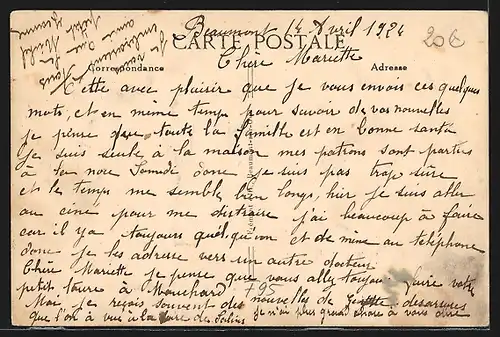 Beaumont 14 Avril 1924
CARTE POSTALE
20€
Correspondance
Adresse
Chère Mariette
C'ette avec plaisir que je vous envois ces quelques
mots, et en même temps pour savoir de vos nouvelles
je pense que toute la famille est en bonne santé
je suis seule à la maison mes patrons sont partis
à la noce Samedi donc je suis pas trop sûre
et le temps me semble bien longs, hier je suis aller
au cine pour me distraire j'ai beaucoup à faire
car il y a toujours quelqu'un et de même au téléphone
donc je les adresse vers un autre docteur
Chère Mariette je pense que vous allez toujours faire votre
petit tours à Mouchard 795
Moi je reçois souvent des nouvelles de
que l'on à vue à la foire de Salins je n'ai plus grand chose à vous dire